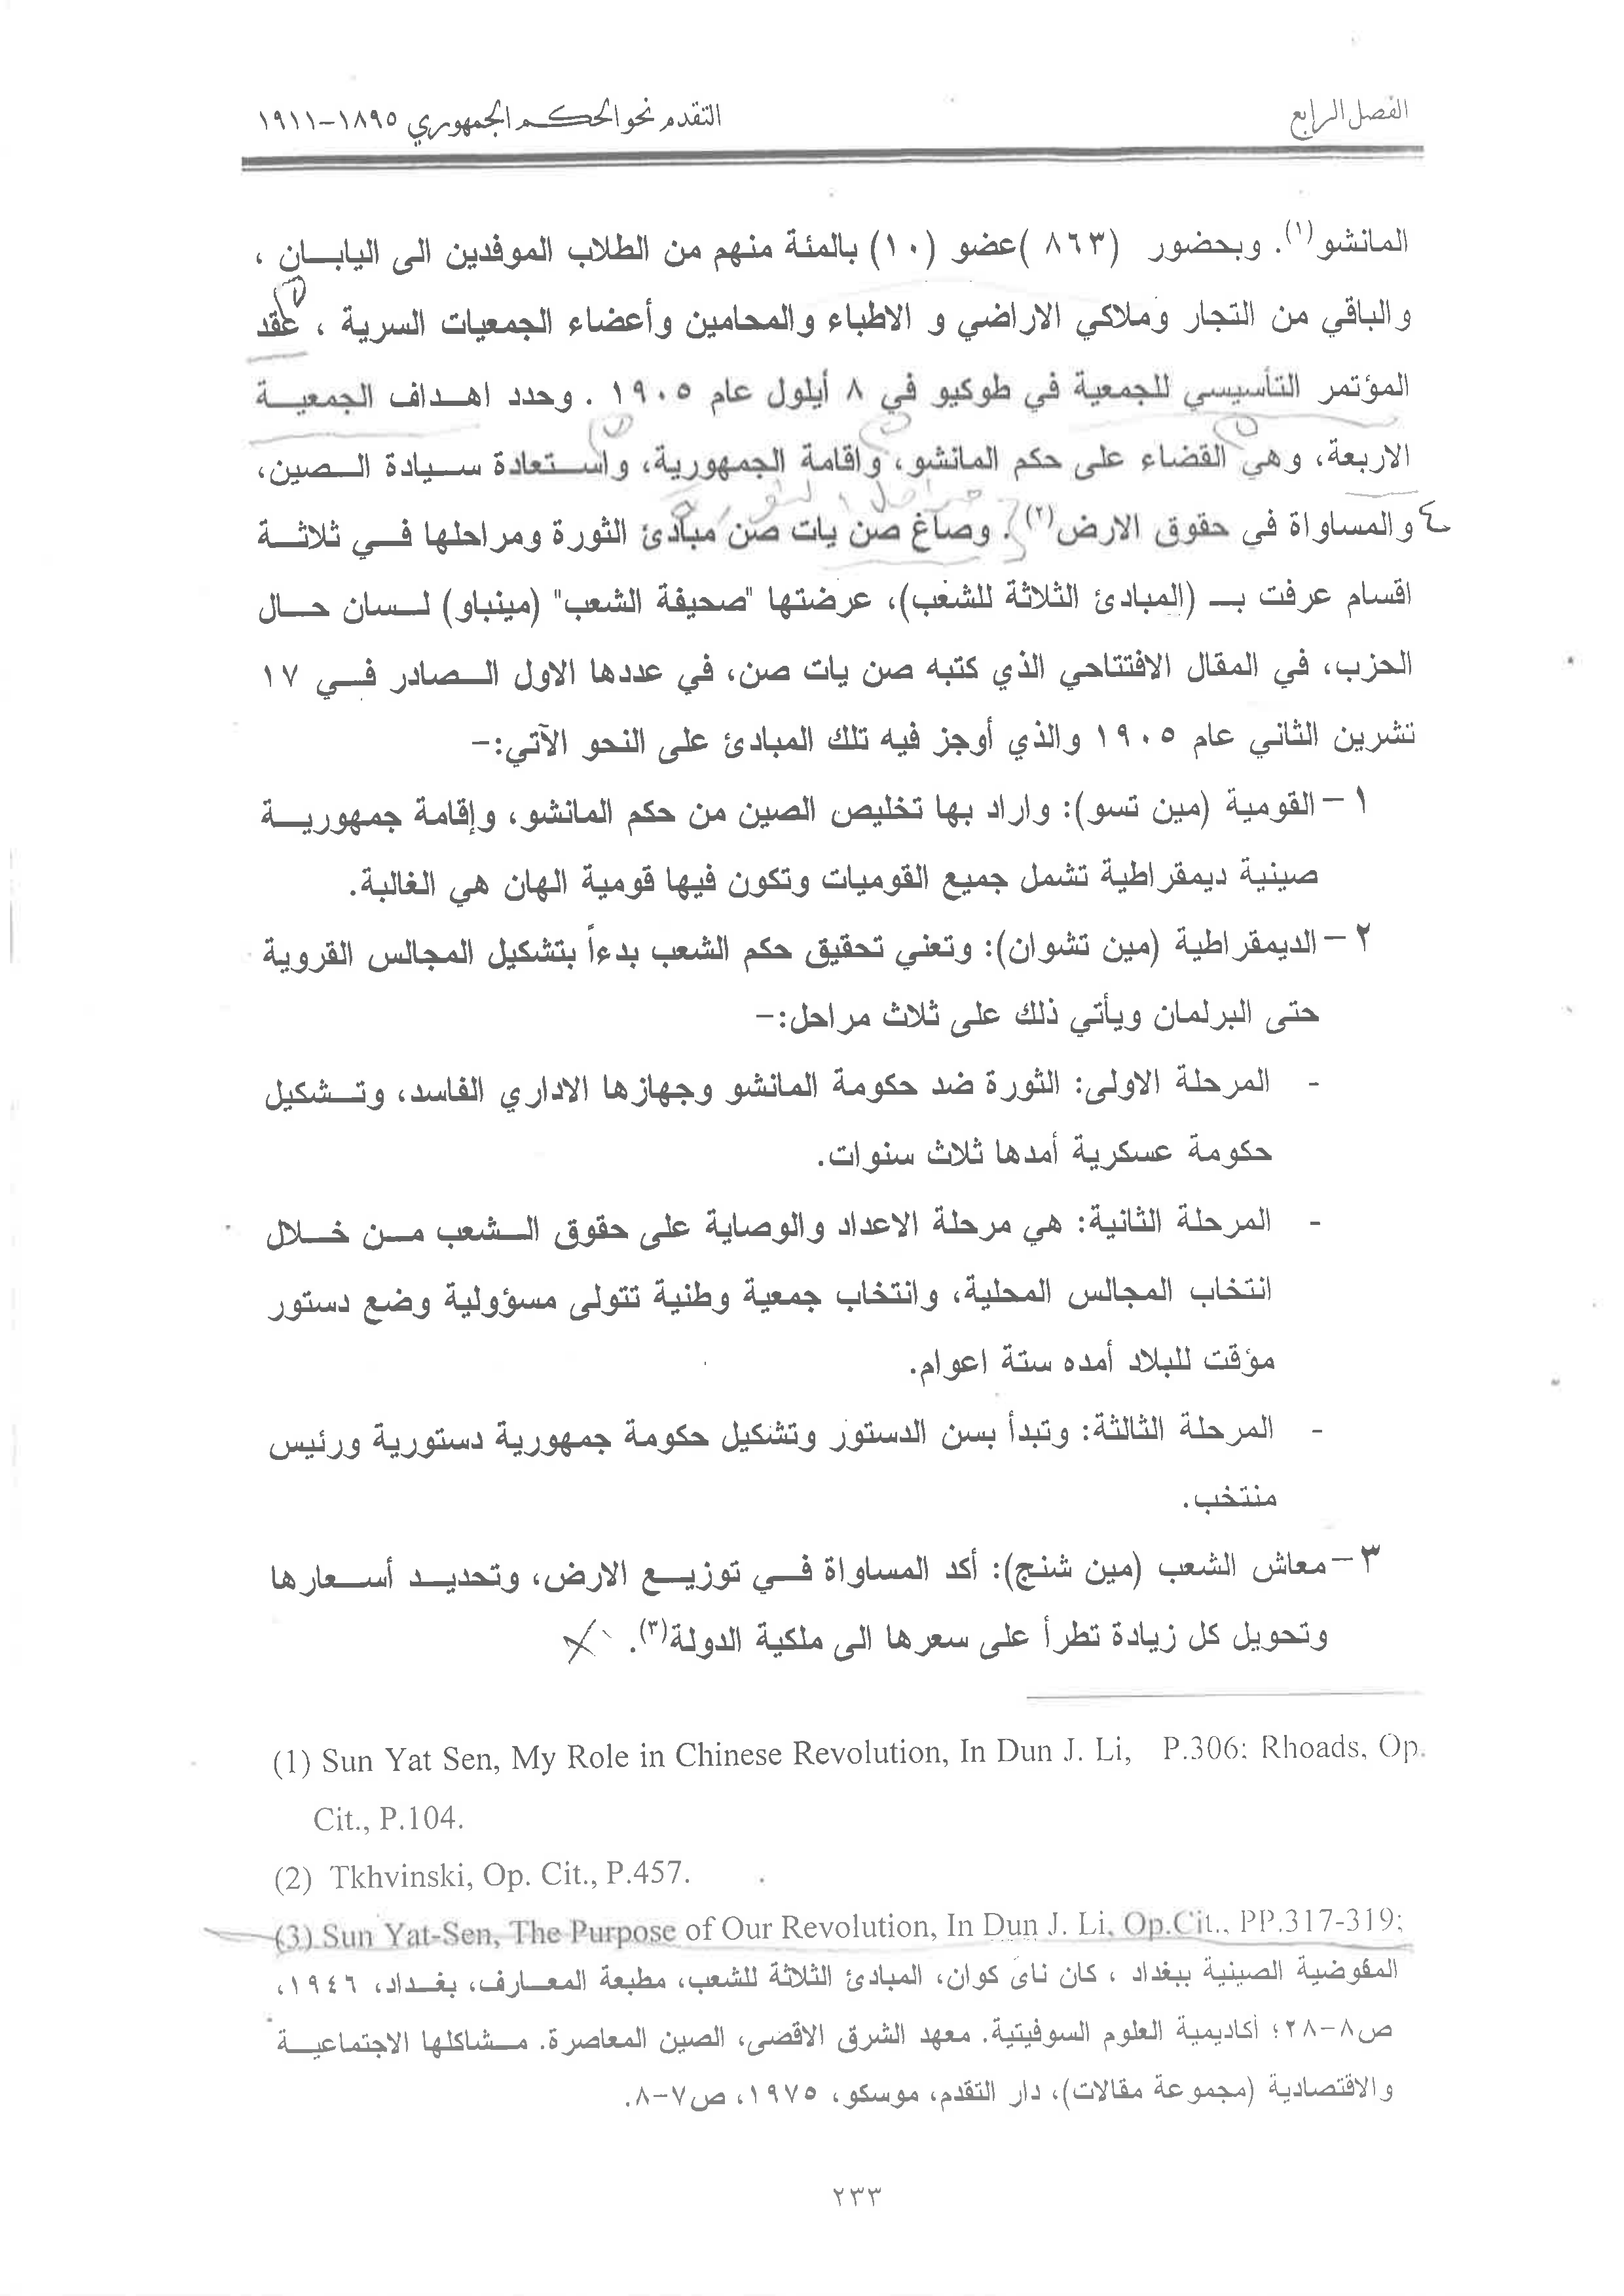 الفصل الرابع
التقدم نحو الحكم الجمهوري ١٨٩٥-١٩١١
المانشو(١). وبحضور (٨٦٣) عضو (١٠) بالمئة منهم من الطلاب الموفدين الى اليابان ،
والباقي من التجار وملاكي الاراضي و الاطباء والمحامين وأعضاء الجمعيات السرية ، عقد
المؤتمر التأسيسي للجمعية في طوكيو في ٨ أيلول عام ١٩٠٥ . وحدد اهداف الجمعية
الاربعة، وهي القضاء على حكم المانشو، واقامة الجمهورية، واستعادة سيادة الصين،
٤ والمساواة في حقوق الارض(٢). وصاغ صن يات صن مبادئ الثورة ومراحلها في ثلاثة
اقسام عرفت بـ (المبادئ الثلاثة للشعب)، عرضتها "صحيفة الشعب" (مينباو) لسان حال
الحزب، في المقال الافتتاحي الذي كتبه صن يات صن، في عددها الاول الصادر في ١٧
تشرين الثاني عام ١٩٠٥ والذي أوجز فيه تلك المبادئ على النحو الآتي:-
١- القومية (مين تسو): واراد بها تخليص الصين من حكم المانشو، وإقامة جمهورية
صينية ديمقراطية تشمل جميع القوميات وتكون فيها قومية الهان هي الغالبة.
٢- الديمقراطية (مين تشوان): وتعني تحقيق حكم الشعب بدءاً بتشكيل المجالس القروية
حتى البرلمان ويأتي ذلك على ثلاث مراحل:-
- المرحلة الاولى: الثورة ضد حكومة المانشو وجهازها الاداري الفاسد، وتشكيل
حكومة عسكرية أمدها ثلاث سنوات.
- المرحلة الثانية: هي مرحلة الاعداد والوصاية على حقوق الشعب من خلال
انتخاب المجالس المحلية، وانتخاب جمعية وطنية تتولى مسؤولية وضع دستور
مؤقت للبلاد أمده ستة اعوام.
- المرحلة الثالثة: وتبدأ بسن الدستور وتشكيل حكومة جمهورية دستورية ورئيس
منتخب.
٣- معاش الشعب (مين شنج): أكد المساواة في توزيع الارض، وتحديد أسعارها
وتحويل كل زيادة تطرأ على سعرها الى ملكية الدولة(٣).
(1) Sun Yat Sen, My Role in Chinese Revolution, In Dun J. Li, P.306; Rhoads, Op.
Cit., P.104.
(2) Tkhvinski, Op. Cit., P.457.
(3) Sun Yat-Sen, The Purpose of Our Revolution, In Dun J. Li, Op.Cit., PP.317-319;
المفوضية الصينية ببغداد ، كان ناى كوان، المبادئ الثلاثة للشعب، مطبعة المعارف، بغداد، ١٩٤٦،
ص٨-٢٨؛ أكاديمية العلوم السوفيتية. معهد الشرق الاقصى، الصين المعاصرة. مشاكلها الاجتماعية
والاقتصادية (مجموعة مقالات)، دار التقدم، موسكو، ١٩٧٥، ص٧-٨.
٢٣٣